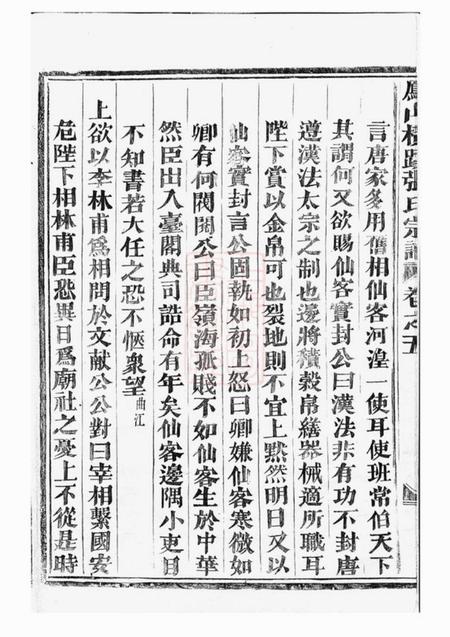 鳳山樓蹟張氏宗譜 卷之五
言唐家多用僧相仙客河湟一使耳使班常伯天下
其謂何又欲賜仙客實封公曰漢法非有功不封唐
遵漢法太宗之制也邊將積穀帛繕器械適所職耳
陛下賞以金帛可也裂地則不宜上黙然明日又以
仙客實封言公固執如初上怒曰卿嫌仙客寒微如
卿有何閥閱公曰臣嶺海孤賤不如仙客生於中華
然臣出入臺閣典司誥命有年矣仙客邊隅小吏目
不知書若大任之恐不愜衆望曲江
上欲以李林甫爲相問於文献公公對曰宰相繫國安
危陛下相林甫臣恐異日爲廟社之憂上不從是時